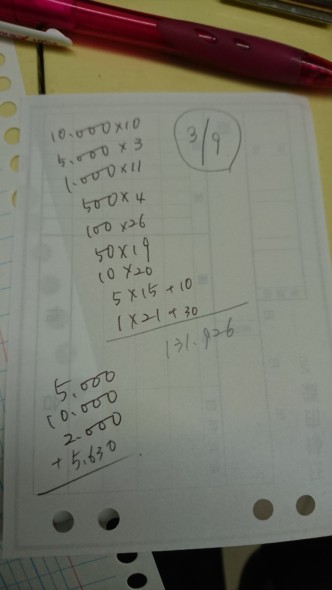 3/9
10.000×10
5.000×3
1.000×11
500×4
100×26
50×19
10×20
5×15+10
1×21+30
131.926
5.000
10.000
2.000
+5.630